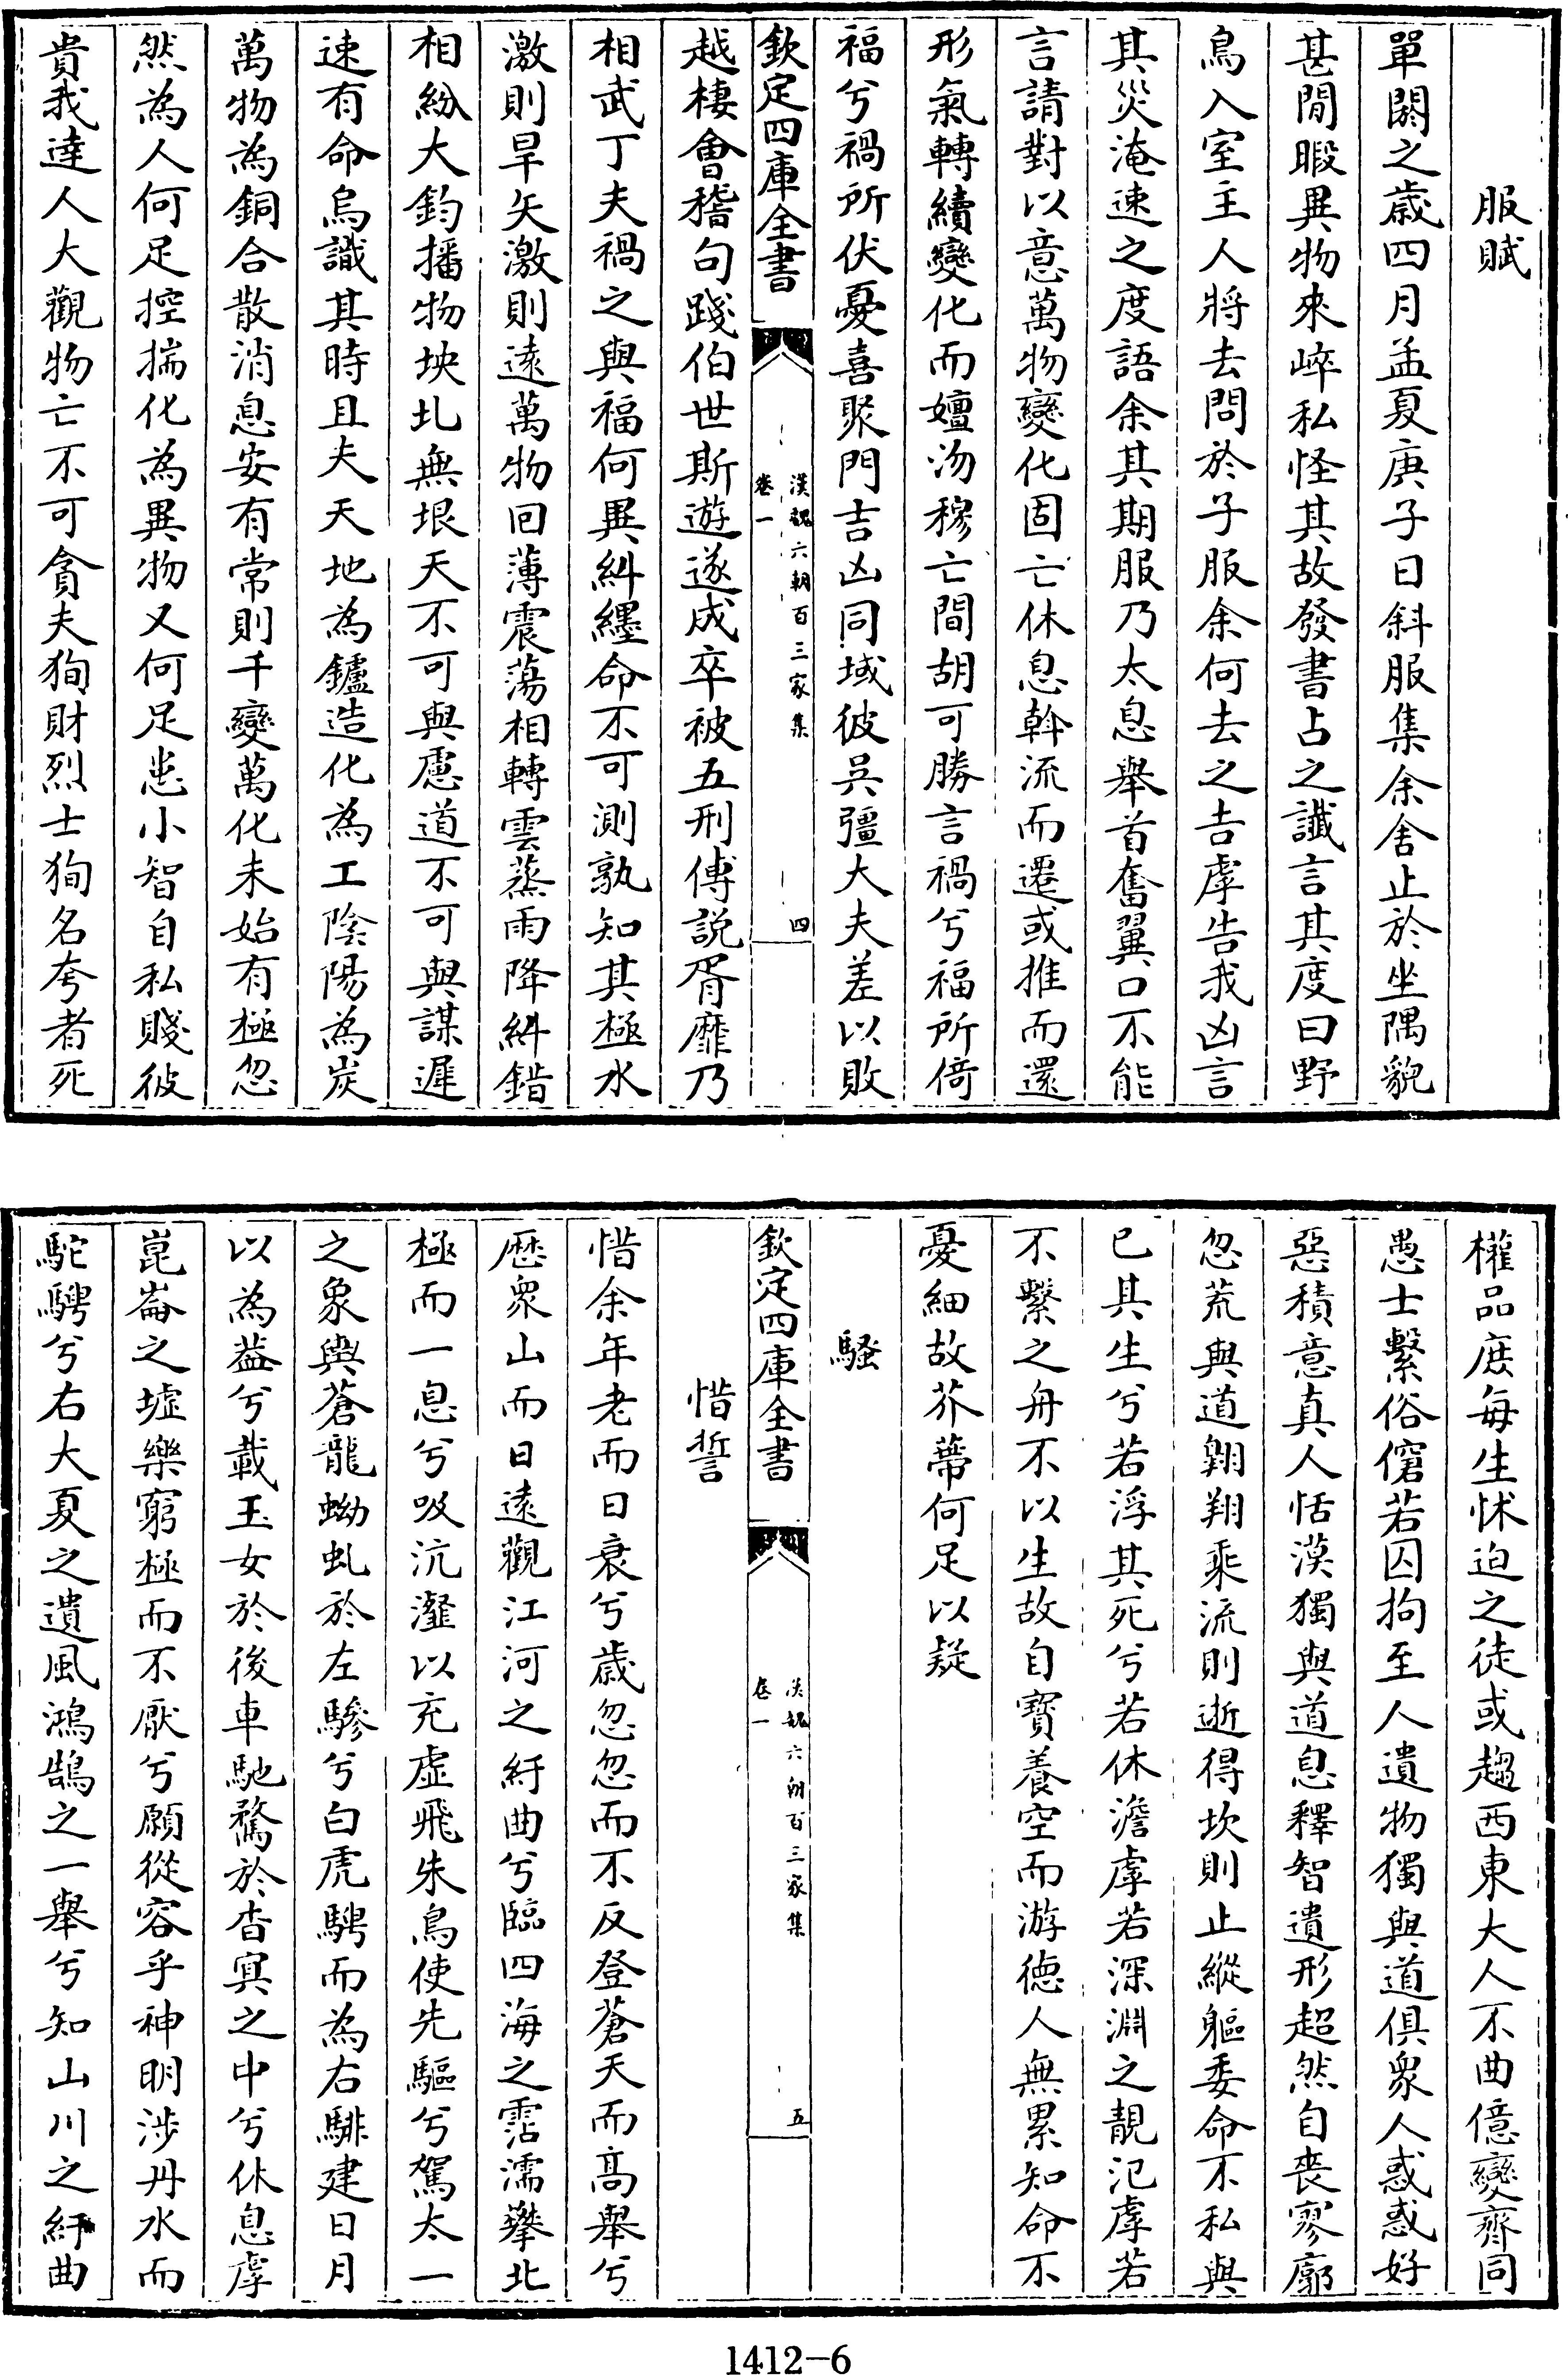 服賦
單閼之歳四月孟夏庚子日斜服集余舍止於坐隅貌
甚閒暇異物來崪私怪其故發書占之讖言其度曰野
鳥入室主人將去問於子服余何去之吉虖告我凶言
其災淹速之度語余其期服乃太息舉首奮翼口不能
言請對以意萬物變化固亡休息斡流而遷或推而還
形氣轉續變化而嬗沕穆亡間胡可勝言禍兮福所倚
福兮禍所伏憂喜聚門吉凶同域彼吳彊大夫差以敗
欽定四庫全書
漢魏六朝百三家集
卷一
四
越棲會稽句踐伯世斯遊遂成卒被五刑傅説胥靡乃
相武丁夫禍之與福何異糾纆命不可測孰知其極水
激則旱矢激則逺萬物回薄震蕩相轉雲蒸雨降糾錯
相紛大鈞播物坱圠無垠天不可與慮道不可與謀遲
速有命烏識其時且夫天地為鑪造化為工陰陽為炭
萬物為銅合散消息安有常則千變萬化未始有極忽
然為人何足控揣化為異物又何足患小智自私賤彼
貴我達人大觀物亡不可貪夫狥財烈士狥名夸者死
權品庶每生怵迫之徒或趨西東大人不曲億變齊同
愚士繫俗僒若囚拘至人遺物獨與道俱衆人惑惑好
惡積意真人恬漠獨與道息釋智遺形超然自喪寥廓
忽荒與道翺翔乘流則逝得坎則止縱軀委命不私與
已其生兮若浮其死兮若休澹虖若深淵之靚氾虖若
不繫之舟不以生故自寳養空而游徳人無累知命不
憂細故芥蔕何足以疑
騷
欽定四庫全書
漢魏六朝百三家集
卷一
五
惜誓
惜余年老而日衰兮歳忽忽而不反登蒼天而髙舉兮
歴衆山而日逺觀江河之紆曲兮臨四海之霑濡攀北
極而一息兮吸沆瀣以充虚飛朱鳥使先驅兮駕太一
之象輿蒼龍蚴虬於左驂兮白虎騁而為右騑建日月
以為葢兮載玉女於後車馳騖於杳冥之中兮休息虖
崑崙之墟樂窮極而不厭兮願從容乎神明涉丹水而
駝騁兮右大夏之遺風鴻鵠之一舉兮知山川之紆曲
1412-6